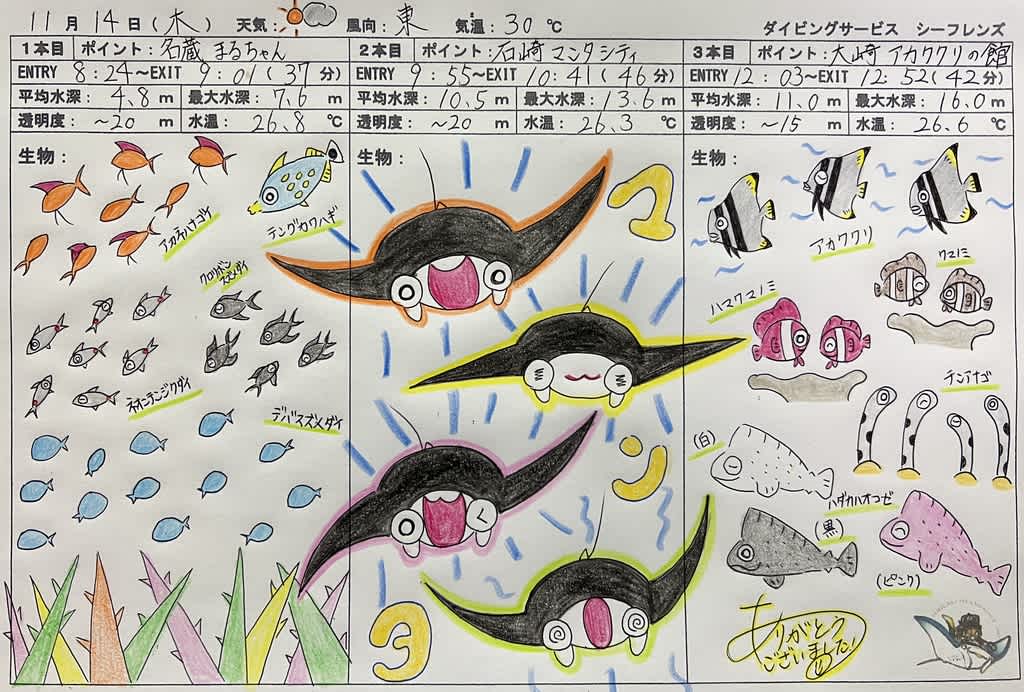 11月14日(木) 天気: 風向:東 気温:30℃ ダイビングサービス シーフレンズ
1本目 ポイント:名蔵 まるちゃん
ENTRY 8:24~EXIT 9:01(37分)
平均水深:4.8m 最大水深:7.6m
透明度:~20m 水温:26.8℃
生物:
アカネハナゴイ
テングカワハギ
クロリボンスズメダイ
ネオンテンジクダイ
デバスズメダイ
2本目 ポイント:石崎 マンタシティ
ENTRY 9:55~EXIT 10:41(46分)
平均水深:10.5m 最大水深:13.6m
透明度:~20m 水温:26.3℃
生物:
マ
ン
タ
3本目 ポイント:大崎 アカククリの館
ENTRY 12:03~EXIT 12:52(42分)
平均水深:11.0m 最大水深:16.0m
透明度:~15m 水温:26.6℃
生物:
アカククリ
クマノミ
ハマクマノミ
チンアナゴ
(白)
ハダカハオコゼ
(黒)
(ピンク)
ありがとう
ございました!